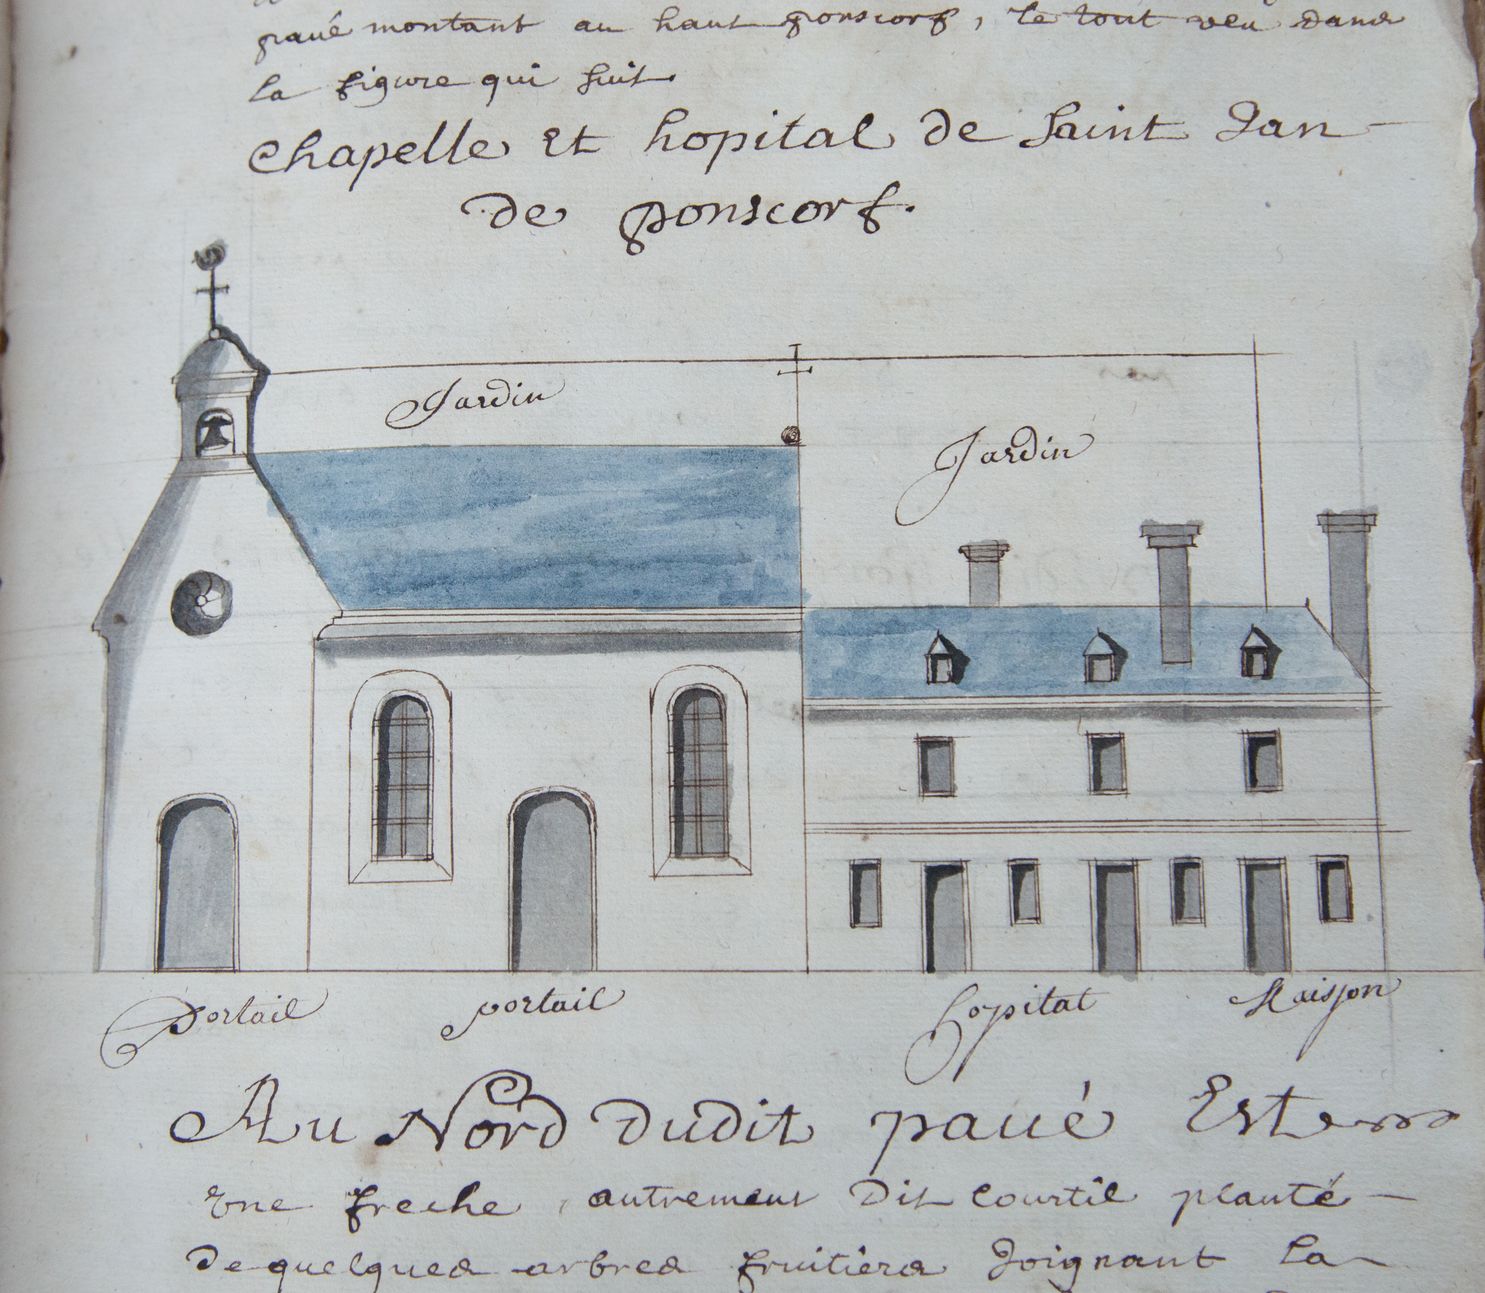 paué montant au haut ponscorf, le tout veu dans
la figure qui suit.
Chapelle Et hopital de Saint Jan
de ponscorf.
Jardin
Jardin
portail
portail
hopital
Maison
Au Nord dudit paué Est
vne freche, autrement Dit Courtil planté
de quelques arbres fruitiers Joignant la